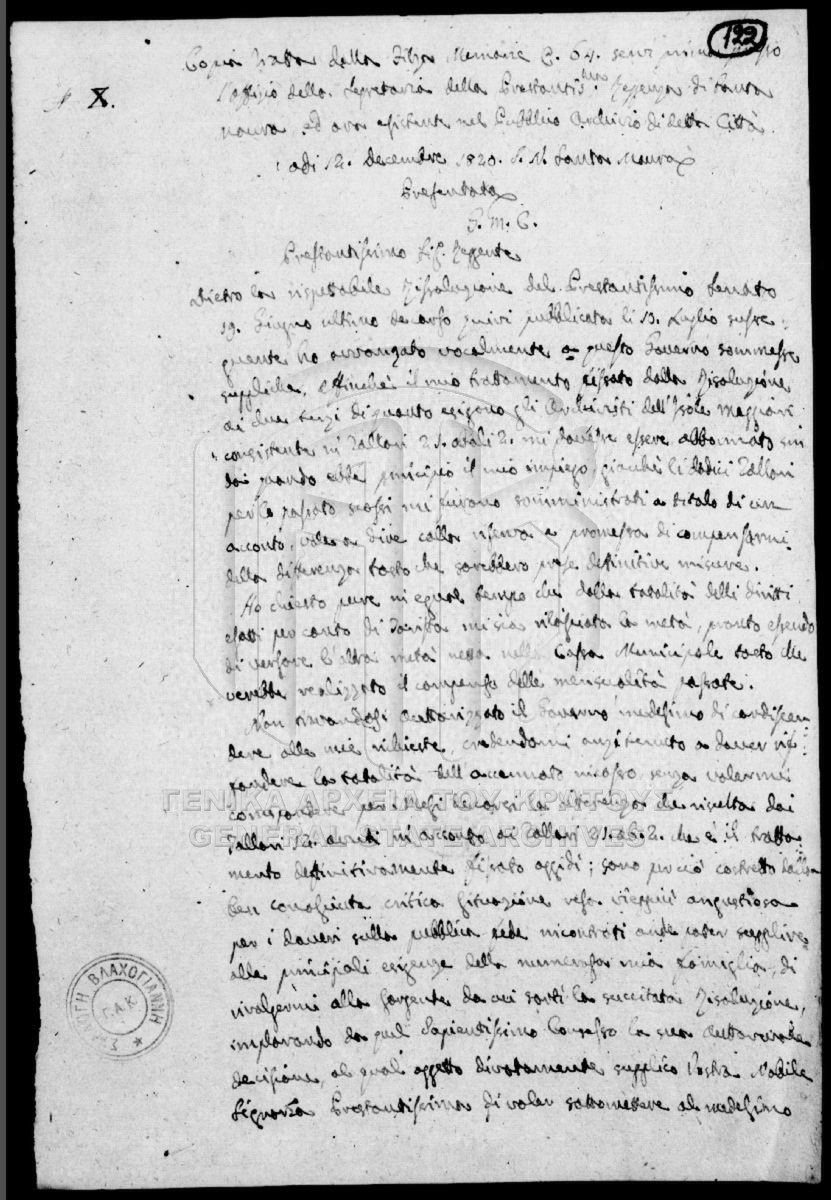 122
Copia tratta dalla Filza Memorie C. 64. servì prima presso
X.
l'Officio della Segretaria della Prestantis.ma Reggenza di Santa
Maura ed ora esistente nel Pubblico Archivio di detta Città
adi 12. Decembre 1820. S. N. Santa Maura
Presentata
S. M. C.
Prestantissimo Sig. Reggente
Dietro la rispettabile Risoluzione del Prestantissimo Senato
19. Giugno ultimo decorso quivi pubblicata li 13. Luglio susse-
guente ho avvanzato vocalmente a questo Governo sommesse
suppliche, affinchè il mio trattamento fissato dalla Risoluzione
ai due terzi di quanto esigono gli Archivisti dell'Isole Maggiori
consistente in Tallari 21. oboli 2. mi dovesse essere abbonnato sin
dai quando ebbe principio il mio impiego, giacchè li dodici Tallari
per lo passato scossi mi furono somministrati a titolo di un
acconto, vale a dire colla riserva e promessa di compensarmi
della differenza tosto che sarebbero prese definitive misure.
Ho chiesto pure in egual tempo che dalla totalità delli diritti
esatti per conto di Tariffa mi sia rilasciata la metà, pronto essendo
di versare l'altra metà nella Cassa Municipale tosto che
verebbe realizzato il compenso delle mensualità passate.
Non trovandosi auttorizzato il Governo medesimo di condiscen-
dere alle mie richieste, credendomi anzi tenuto a dover ris-
pondere la totalità dell'accennato incasso, senza volermi
corrispondere per i Mesi decorsi la differenza che risulta dai
Tallari 12. avuti in acconto ai Tallari 21. ob. 2. che è il tratta-
mento definitivamente fissato oggidì; sono perciò costretto dalla
ben conosciuta critica situazione resa vieppiù angustiosa
per i doveri sulla pubblica fede incontrati onde poter supplire
alle principali esigenze della numerosa mia Famiglia, di
rivolgermi alla sorgente da cui sortì la succitata Risoluzione,
implorando da quel Sapientissimo Consesso la sua auttorevole
decisione, al qual oggetto divotamente supplico Vostra Nobile
Signoria Prestantissima di voler sottomettere al medesimo
ΓΕΝΙΚΑ ΑΡΧΕΙΑ ΤΟΥ ΚΡΑΤΟΥΣ
GENERAL STATE ARCHIVES
ΓΗ ΒΛΑΧΟΓΙΑΝΝΗ
Γ.Α.Κ.